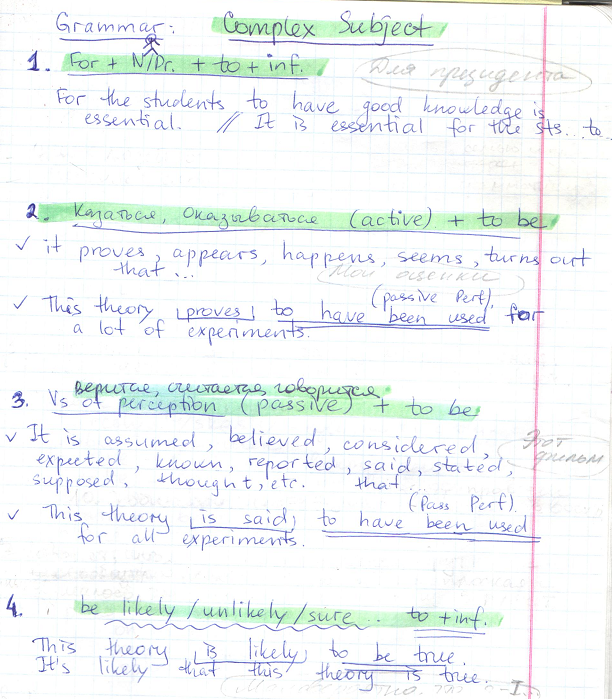 Grammar: Complex Subject
1. For + N/Pr. + to + inf.
Для президента
For the students to have good knowledge is
essential. // It is essential for the sts to
2. Казаться, оказываться (active) + to be
✓ it proves, appears, happens, seems, turns out
that ...
Мои оценки
(passive Perf).
✓ This theory proves to have been used for
a lot of experiments.
верится, считается, говорится
3. Vs of perception (passive) + to be
✓ It is assumed, believed, considered,
Этот
expected, known, reported, said, stated,
supposed, thought, etc. that ...
(Pass Perf).
✓ This theory is said to have been used
for all experiments.
4. be likely / unlikely / sure .. to + inf.
This theory is likely to be true.
It's likely that this theory is true.